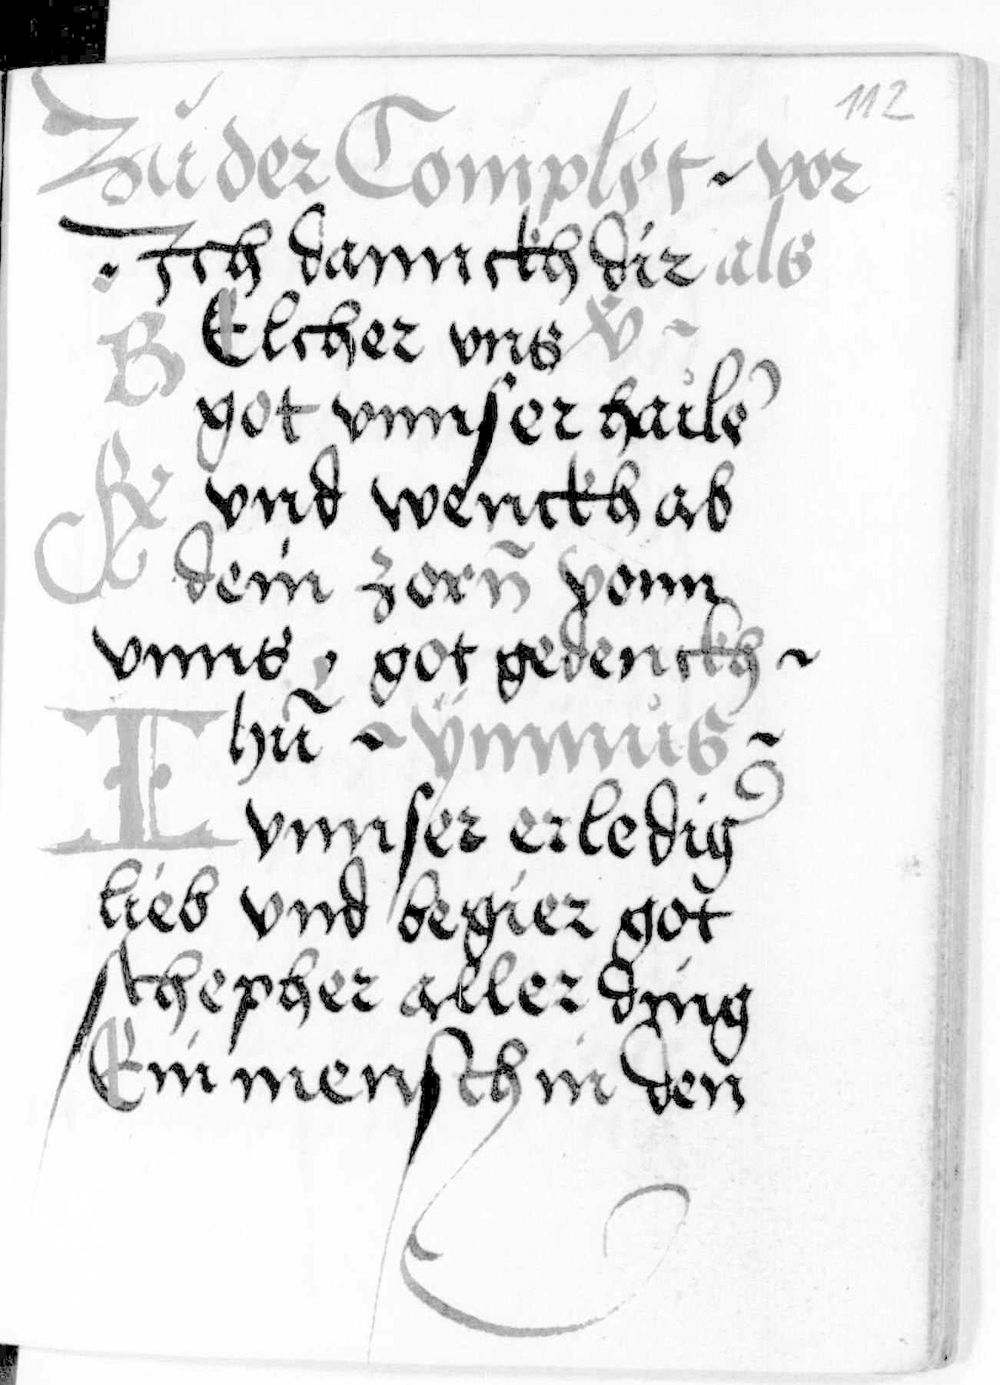 112
Zu der Complet ~ vor
Ich dannckh dir als
BElcher vns v̈ ~
got vnnser haile
℟ vnd wenckh ab
dein zorn̄ vonn
vnns, got gedenckh ~
hū ~ ÿmnus ~
I vnnser erledig
lieb vnd begier got
schepher aller ding
Ein mensch in den